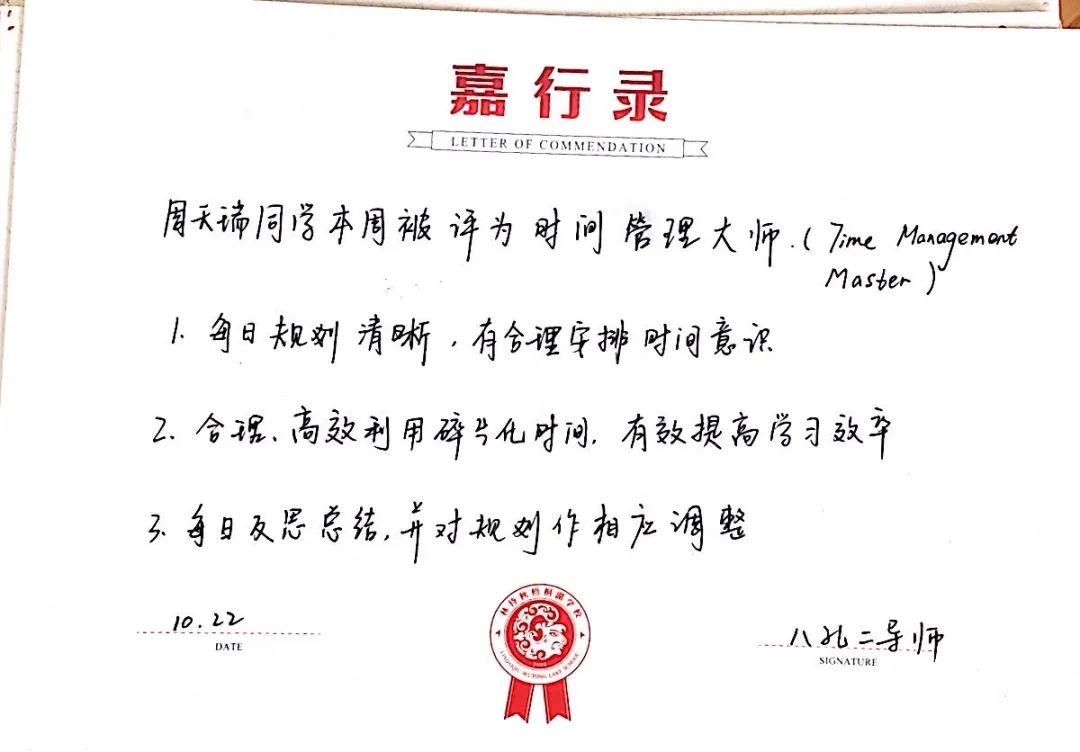 嘉行录
LETTER OF COMMENDATION
周天瑞同学本周被评为时间管理大师.(Time Management
Master)
1. 每日规划清晰，有合理安排时间意识
2. 合理、高效利用碎片化时间，有效提高学习效率
3. 每日反思总结，并对规划作相应调整
10.22
DATE
林扬秋梧桐湖学校
WUTONG LAKE SCHOOL
八北二导师
SIGNATURE